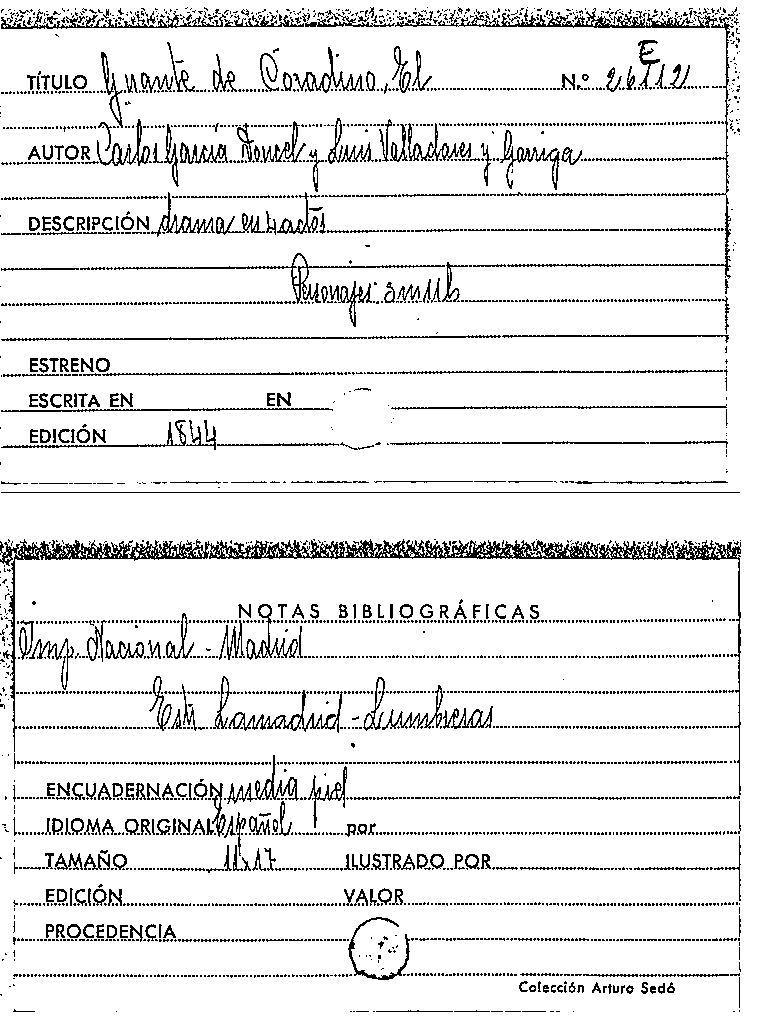 TÍTULO Guante de Coradino, El N.º 26112 E
AUTOR Carlos García Doncel y Luis Valladares y Garriga
DESCRIPCIÓN drama en 4 actos
Personajes: 3m 11h
ESTRENO
ESCRITA EN EN
EDICIÓN 1844
NOTAS BIBLIOGRÁFICAS
Imp. Nacional - Madrid
Estr. Lamadrid - Lumbreras
ENCUADERNACIÓN media piel
IDIOMA ORIGINAL Español por
TAMAÑO 11x17 ILUSTRADO POR
EDICIÓN VALOR
PROCEDENCIA
Colección Arturo Sedó